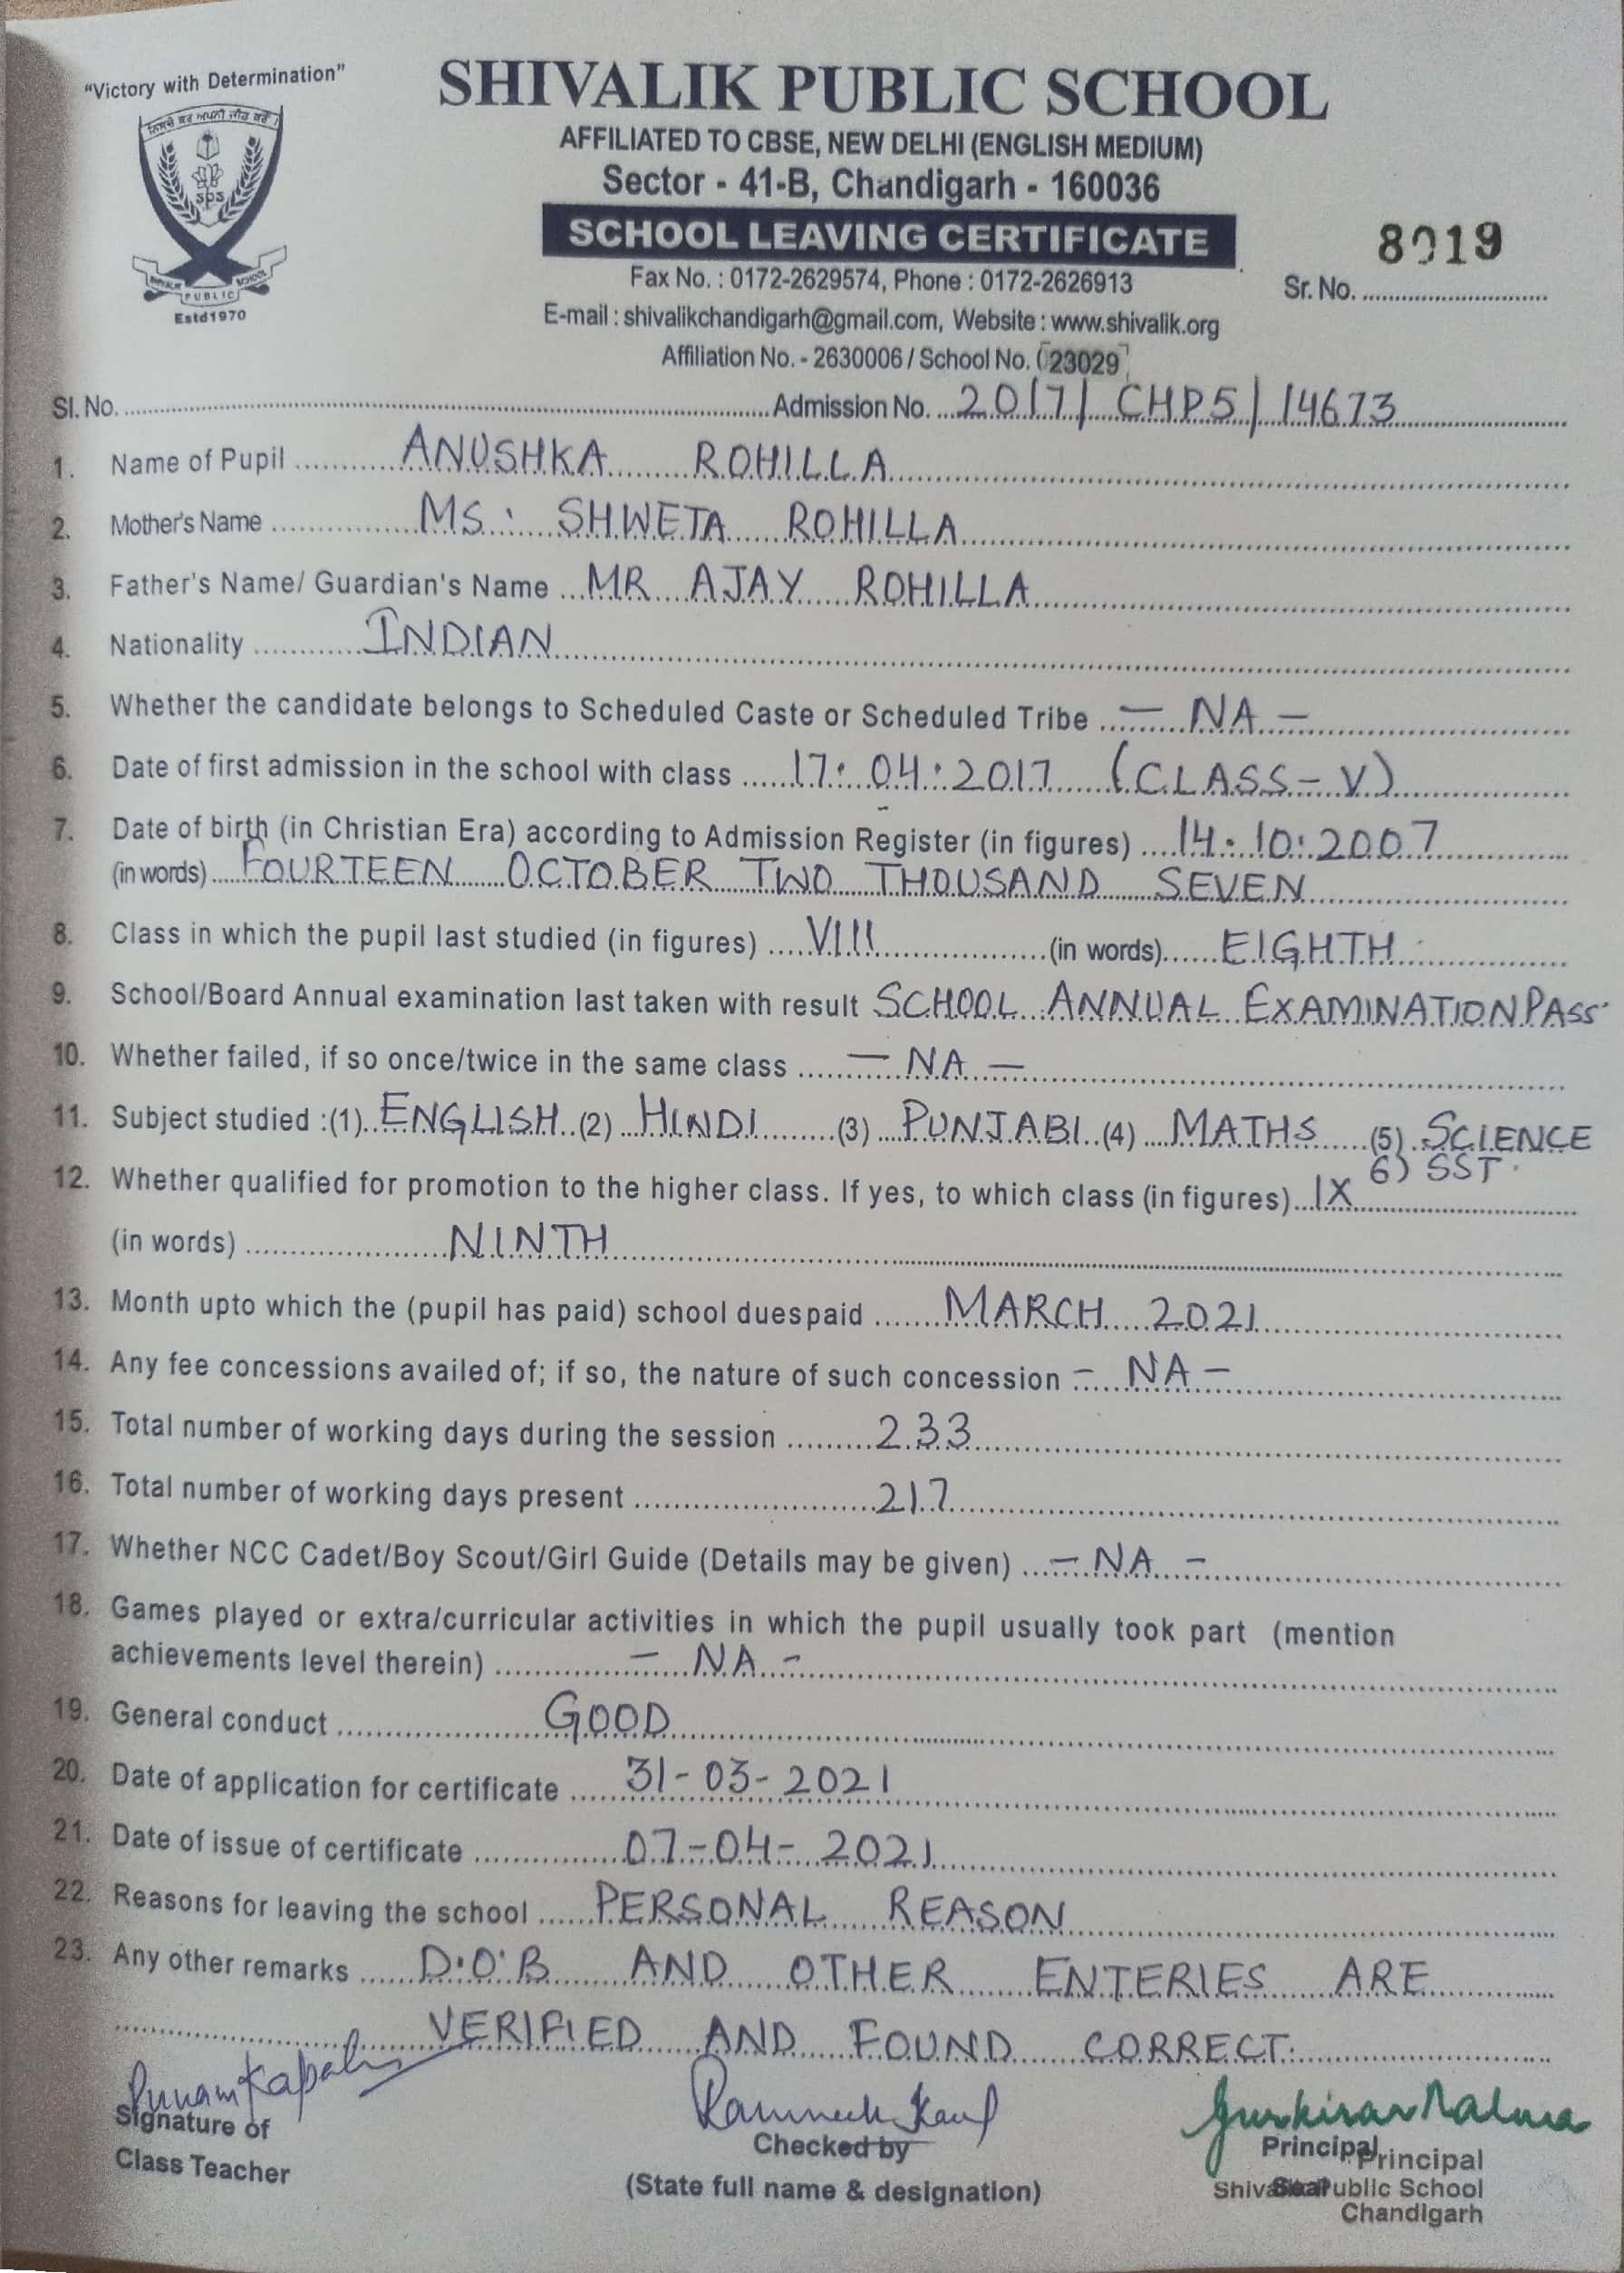 "Victory with Determination"
SHIVALIK PUBLIC SCHOOL
AFFILIATED TO CBSE, NEW DELHI (ENGLISH MEDIUM)
Sector - 41-B, Chandigarh - 160036
SCHOOL LEAVING CERTIFICATE
8019
Fax No. : 0172-2629574, Phone : 0172-2626913
Sr. No.
E-mail : shivalikchandigarh@gmail.com, Website : www.shivalik.org
Affiliation No. - 2630006 / School No. (23029)
sps
SHIVALIK PUBLIC SCHOOL
Estd1970
Sl. No. Admission No. 2017/ CHPS/ 14673
1. Name of Pupil ANUSHKA ROHILLA
2. Mother's Name MS. SHWETA ROHILLA
3. Father's Name/ Guardian's Name MR AJAY ROHILLA
4. Nationality INDIAN
5. Whether the candidate belongs to Scheduled Caste or Scheduled Tribe - NA -
6. Date of first admission in the school with class 17:04:2017 (CLASS-V)
7. Date of birth (in Christian Era) according to Admission Register (in figures) 14:10:2007
(in words) FOURTEEN OCTOBER TWO THOUSAND SEVEN
8. Class in which the pupil last studied (in figures) VIII (in words) EIGHTH
9. School/Board Annual examination last taken with result SCHOOL ANNUAL EXAMINATION PASS
10. Whether failed, if so once/twice in the same class - NA -
11. Subject studied :(1) ENGLISH (2) HINDI (3) PUNJABI (4) MATHS (5) SCIENCE
6) SST
12. Whether qualified for promotion to the higher class. If yes, to which class (in figures) IX
(in words) NINTH
13. Month upto which the (pupil has paid) school duespaid MARCH 2021
14. Any fee concessions availed of; if so, the nature of such concession - NA -
15. Total number of working days during the session 233
16. Total number of working days present 217
17. Whether NCC Cadet/Boy Scout/Girl Guide (Details may be given) - NA -
18. Games played or extra/curricular activities in which the pupil usually took part (mention
achievements level therein) - NA -
19. General conduct GOOD
20. Date of application for certificate 31-03-2021
21. Date of issue of certificate 07-04-2021
22. Reasons for leaving the school PERSONAL REASON
23. Any other remarks D.O.B AND OTHER ENTERIES ARE
VERIFIED AND FOUND CORRECT.
Signature of
Class Teacher
Checked by
(State full name & designation)
Principal
Seal
Principal
Shivalik Public School
Chandigarh